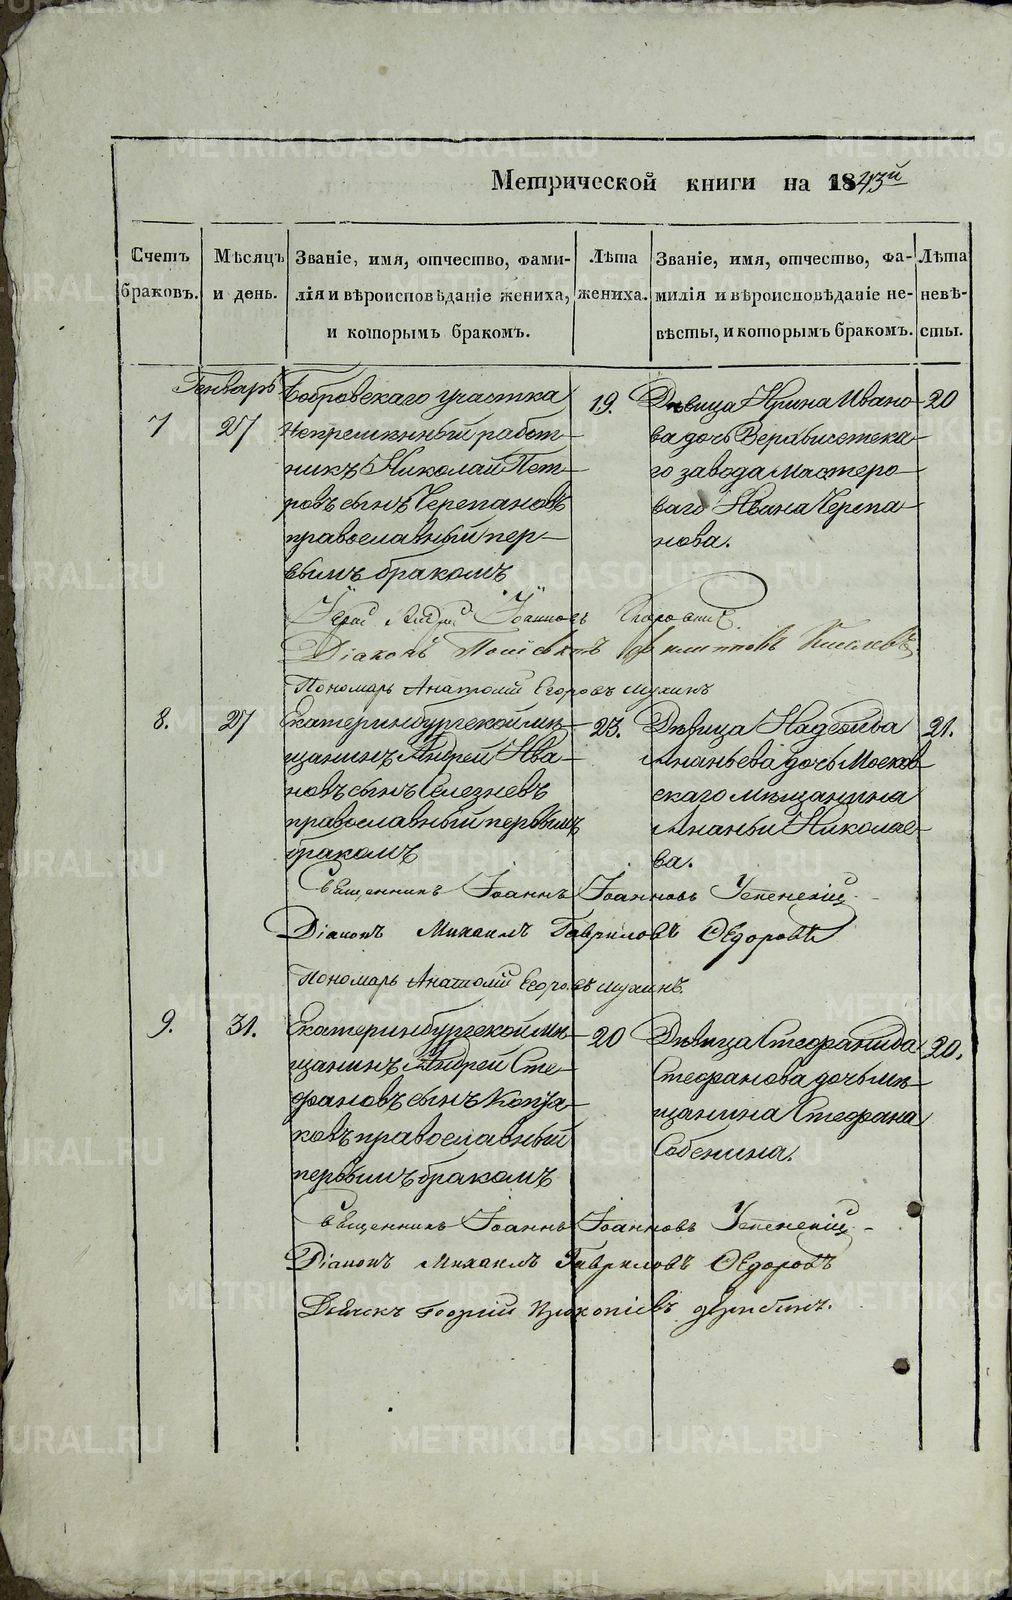 Метрической книги на 1843й
Счетъ браковъ.
Мѣсяцъ и день.
Званіе, имя, отчество, фами-
лія и вѣроисповѣданіе жениха,
и которымъ бракомъ.
Лѣта жениха.
Званіе, имя, отчество, фа-
милія и вѣроисповѣданіе не-
вѣсты, и которымъ бракомъ.
Лѣта невѣ-
сты.
Генварь
7
27
Бобровскаго участка
непремѣнный работ-
никъ Николай Пет-
ровъ сынъ Черепановъ
православный пер-
вымъ бракомъ
19.
Дѣвица Ирина Ивано-
ва дочь Верхъисетска-
го завода мастеро-
ваго Ивана Черепа-
нова.
20
Іерей Андрей Іоанновъ
Діаконъ Филипповъ Киселевъ
Пономарь Анатолій Егоровъ Мухинъ
8.
27
Екатеринбургской мѣ-
щанинъ Андрей Ива-
новъ сынъ Селезневъ
православный первымъ
бракомъ
23.
Дѣвица Надежда
Ананьева дочь Москов-
скаго мѣщанина
Ананьи Николае-
ва.
21.
Священникъ Іоаннъ Іоанновъ Успенскій
Діаконъ Михаилъ Гавриловъ Ѳедоровъ
Пономарь Анатолій Егоровъ Мухинъ.
9.
31.
Екатеринбургской мѣ-
щанинъ Андрей Сте-
фановъ сынъ Копта-
ковъ православный
первымъ бракомъ
20
Дѣвица Стефанида
Стефанова дочь мѣ-
щанина Стефана
Собенина.
20.
Священникъ Іоаннъ Іоанновъ Успенскій
Діаконъ Михаилъ Гавриловъ Ѳедоровъ
Дьячекъ Георгій Прокопіевъ
METRIKI.GASO-URAL.RU